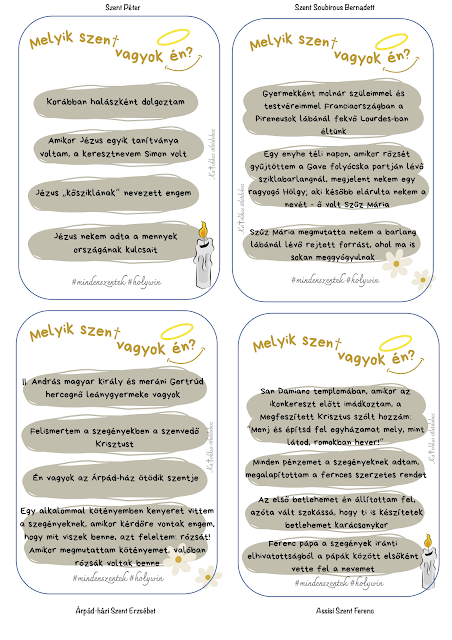 Szent Péter
Melyik szent
vagyok én?
Korábban halászként dolgoztam
Amikor Jézus egyik tanítványa
voltam, a keresztnevem Simon volt
Jézus „kősziklának” nevezett engem
Jézus nekem adta a mennyek
országának kulcsait
#mindenszentek #holywin
Szent Soubirous Bernadett
Melyik szent
vagyok én?
Gyermekként molnár szüleimmel és
testvéreimmel Franciaországban a
Pireneusok lábánál fekvő Lourdes-ban
éltünk
Egy enyhe téli napon, amikor rőzsét
gyűjtöttem a Gave folyócska partján lévő
sziklabarlangnál, megjelent nekem egy
ragyogó Hölgy; aki később elárulta nekem a
nevét - ő volt Szűz Mária
Szűz Mária megmutatta nekem a barlang
lábánál lévő rejtett forrást, ahol ma is
sokan meggyógyulnak
#mindenszentek #holywin
Melyik szent
vagyok én?
II. András magyar király és meráni Gertrúd
hercegnő leánygyermeke vagyok
Felismertem a szegényekben a szenvedő
Krisztust
Én vagyok az Árpád-ház ötödik szentje
Egy alkalommal kötényemben kenyeret vittem
a szegényeknek, amikor kérdőre vontak engem,
hogy mit viszek benne, azt feleltem: rózsát!
Amikor megmutattam kötényemet, valóban
rózsák voltak benne
#mindenszentek #holywin
Árpád-házi Szent Erzsébet
Melyik szent
vagyok én?
San Damiano templomában, amikor az
ikonkereszt előtt imádkoztam, a
Megfeszített Krisztus szólt hozzám:
"Menj és építsd fel egyházamat mely, mint
látod, romokban hever!"
Minden pénzemet a szegényeknek adtam,
megalapítottam a ferences szerzetes rendet
Az első betlehemet én állítottam fel,
azóta vált szokássá, hogy ti is készítetek
betlehemet karácsonykor
Ferenc pápa a szegények iránti
elhivatottságból a pápák között elsőként
vette fel a nevemet
#mindenszentek #holywin
Assisi Szent Ferenc